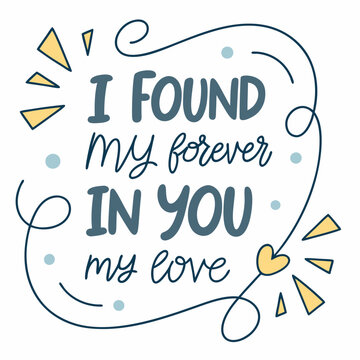 I FOUND
my forever
IN YOU
my love